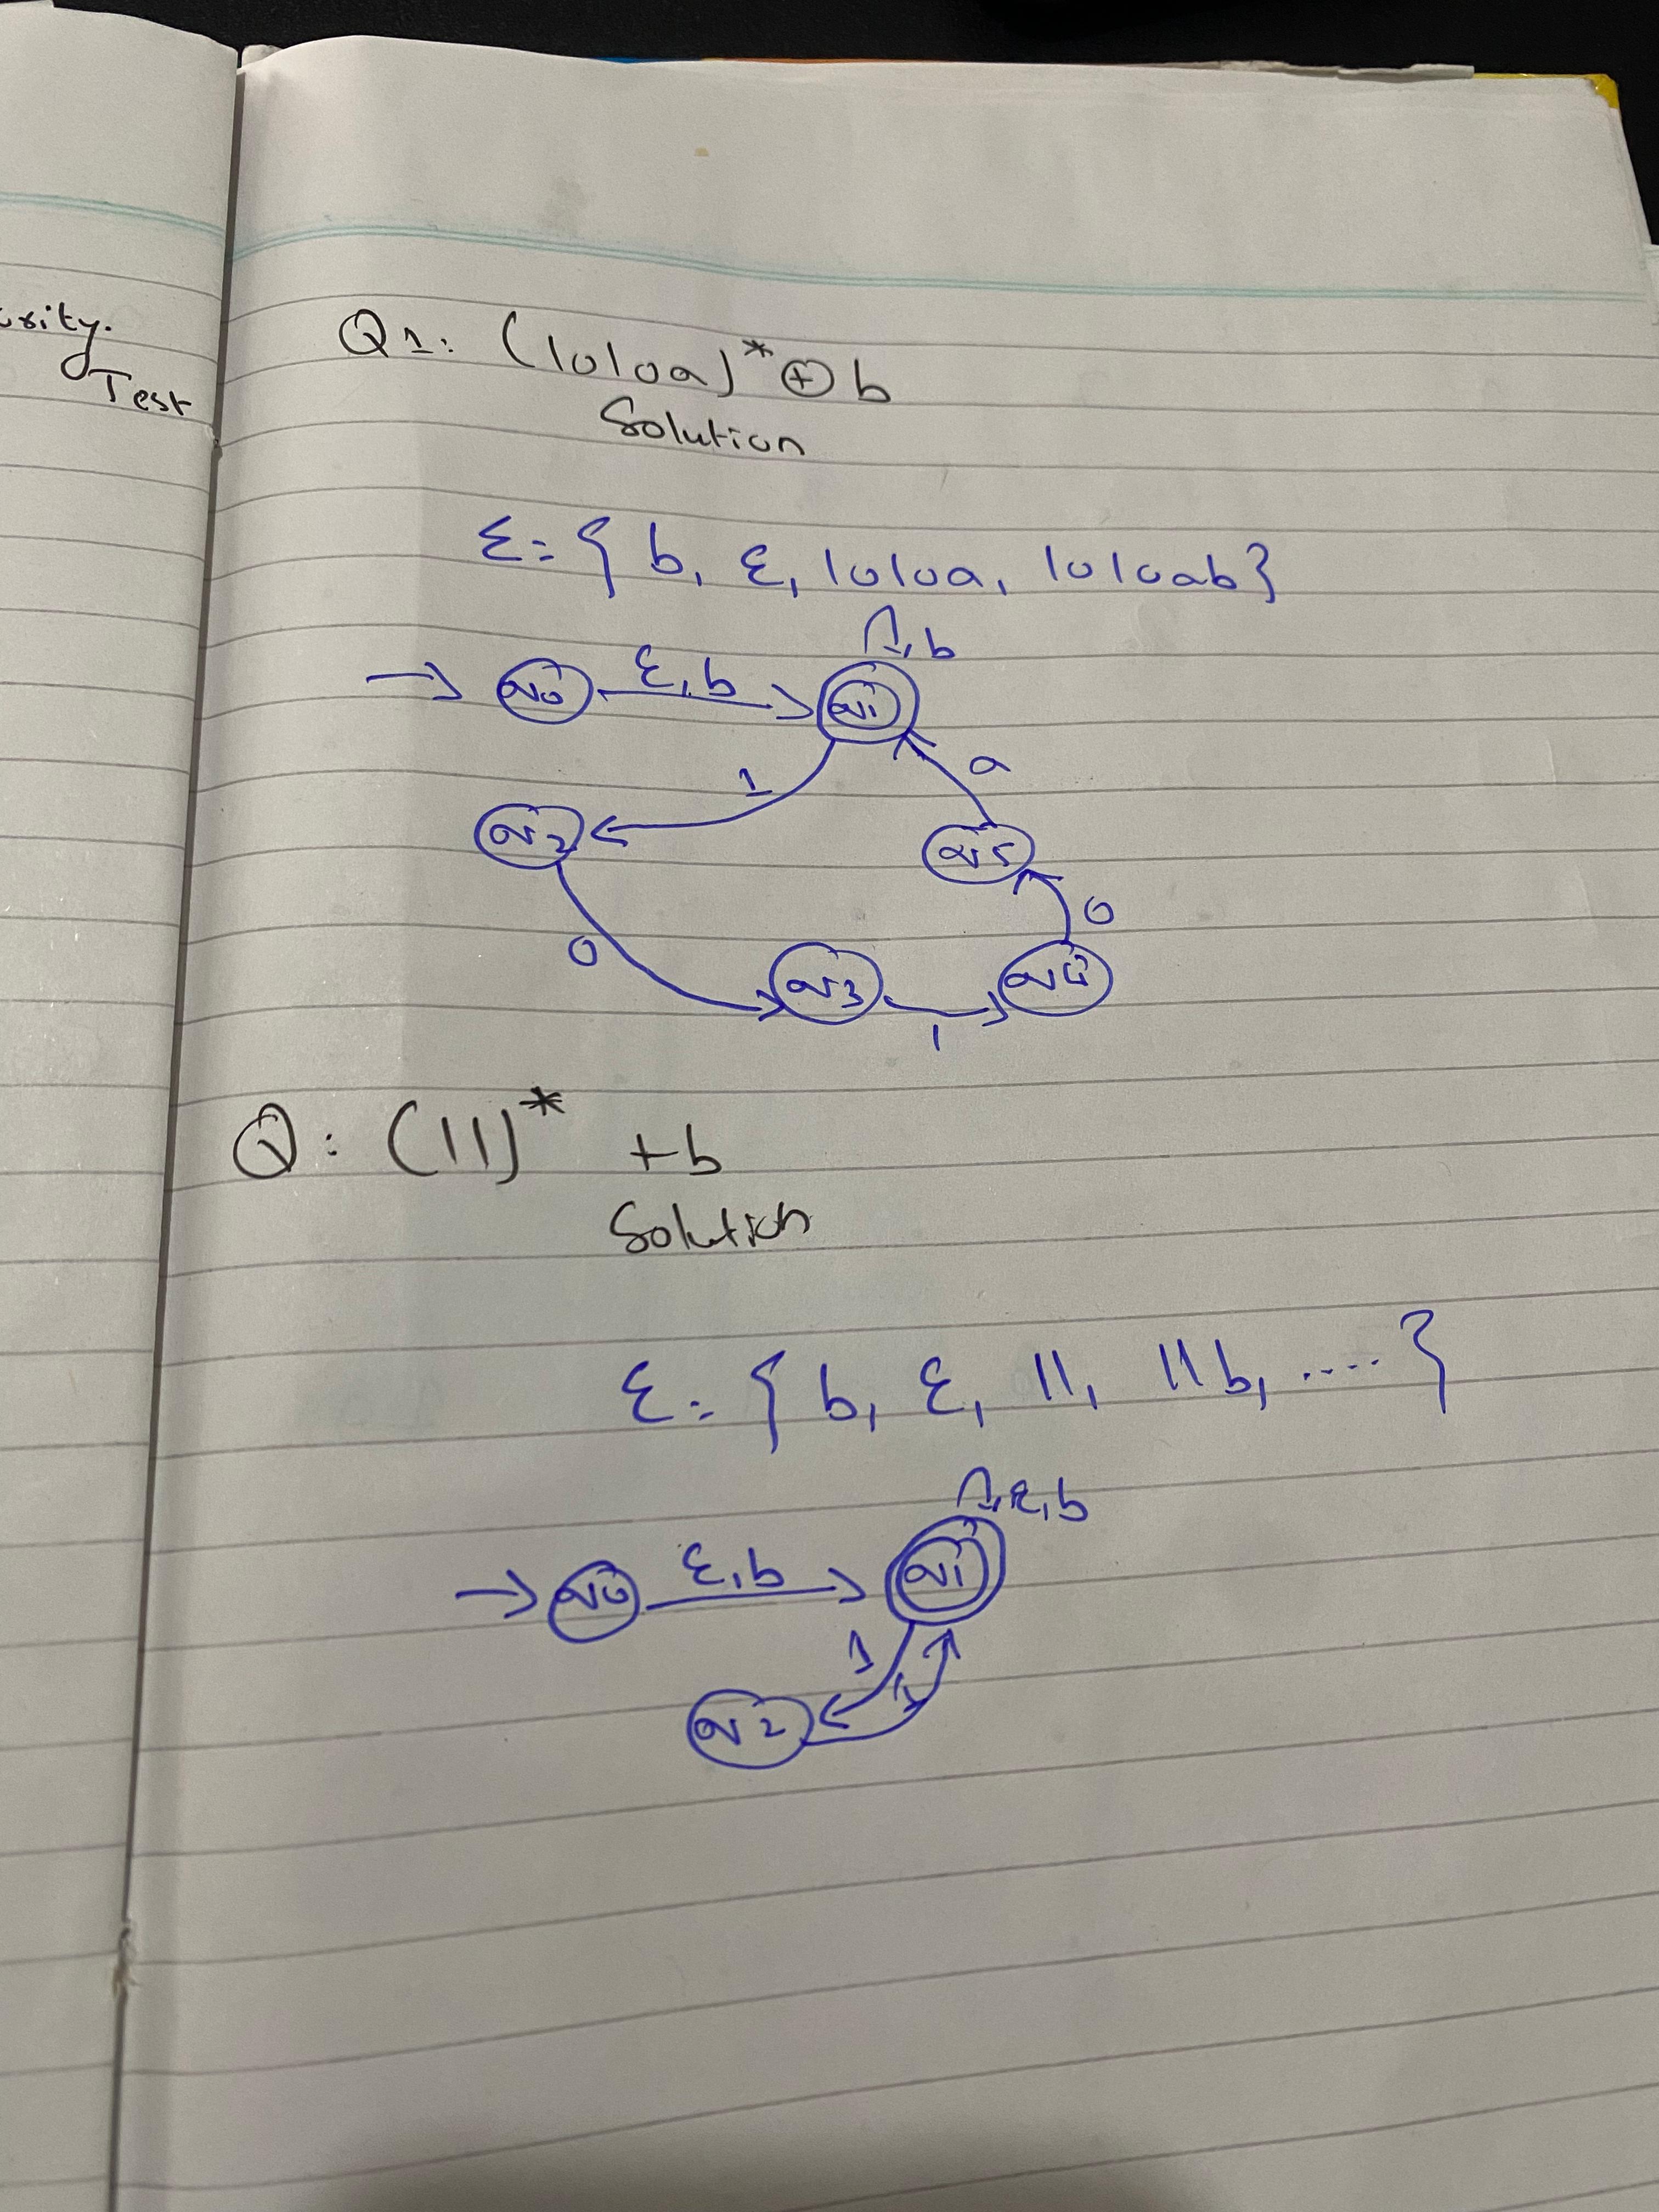 Test
Q1: (1010a)* ⊕ b
Solution
Σ = { b, ε, 1010a, 1010ab }
b
q0 ε, b q1
1 a
q2 q5
0 0
q3 q4
1
Q: (11)* + b
Solution
Σ = { b, ε, 11, 11b, .... }
ε, b
q0 ε, b q1
1 1
q2